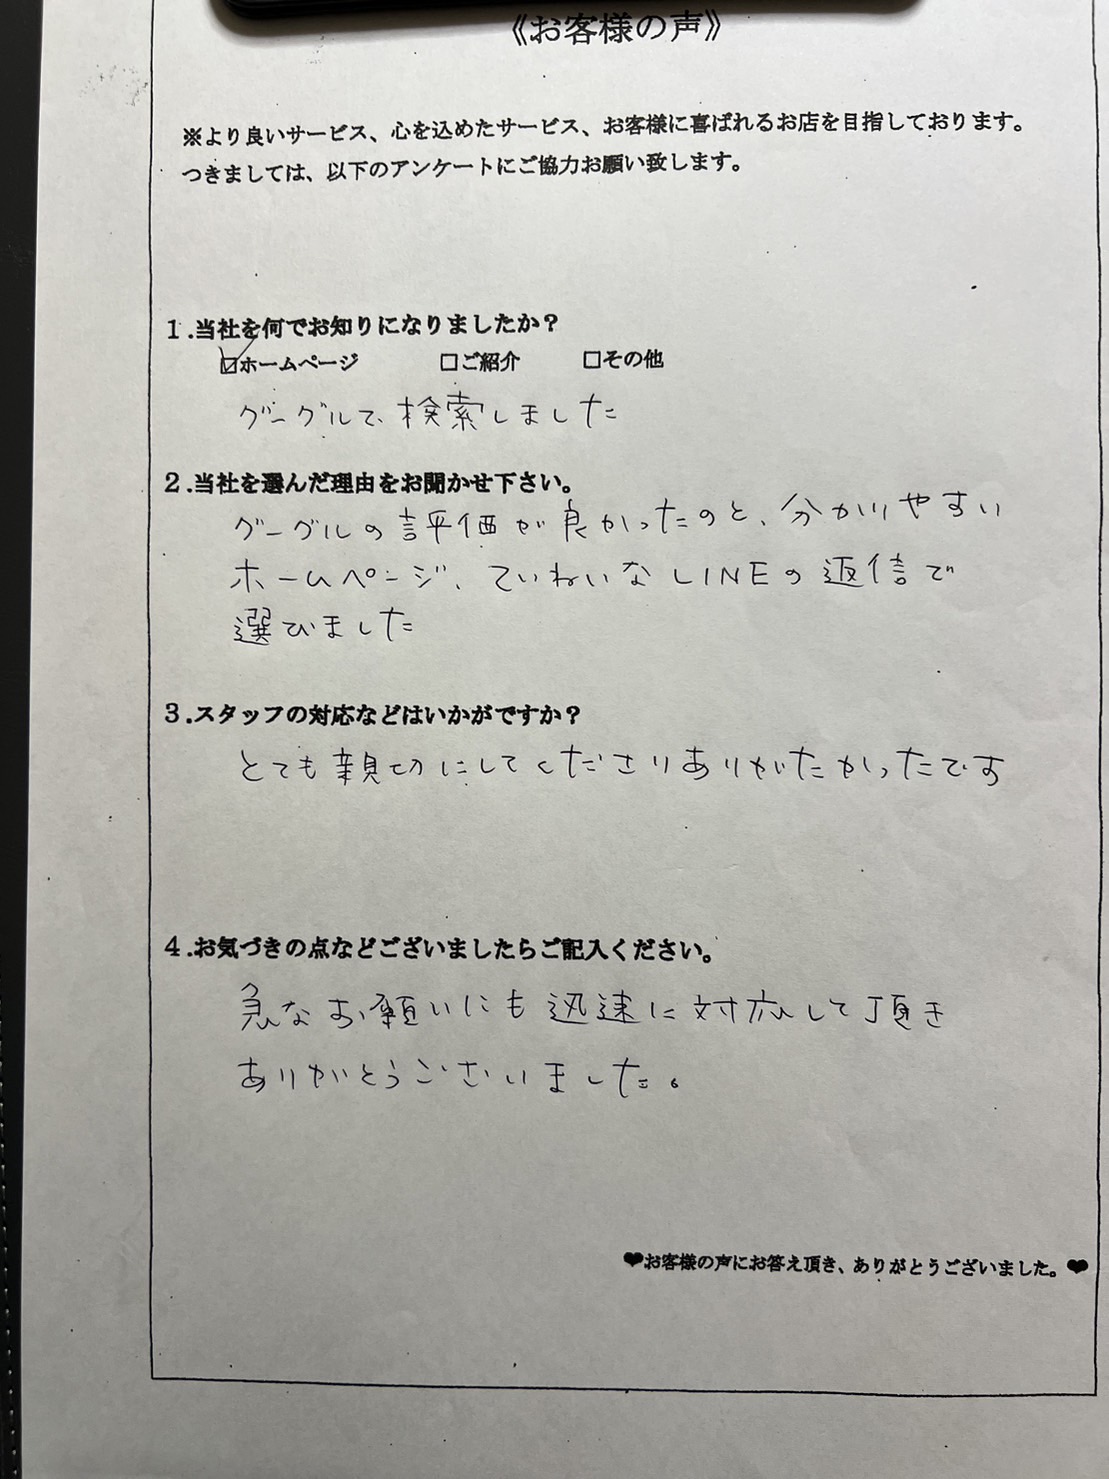 《お客様の声》
※より良いサービス、心を込めたサービス、お客様に喜ばれるお店を目指しております。
つきましては、以下のアンケートにご協力お願い致します。
1.当社を何でお知りになりましたか？
☑ホームページ □ご紹介 □その他
グーグルで検索しました
2.当社を選んだ理由をお聞かせ下さい。
グーグルの評価が良かったのと、分かりやすい
ホームページ、ていねいなLINEの返信で
選びました
3.スタッフの対応などはいかがですか？
とても親切にしてくださりありがたかったです
4.お気づきの点などございましたらご記入ください。
急なお願いにも迅速に対応して頂き
ありがとうございました。
❤お客様の声にお答え頂き、ありがとうございました。❤